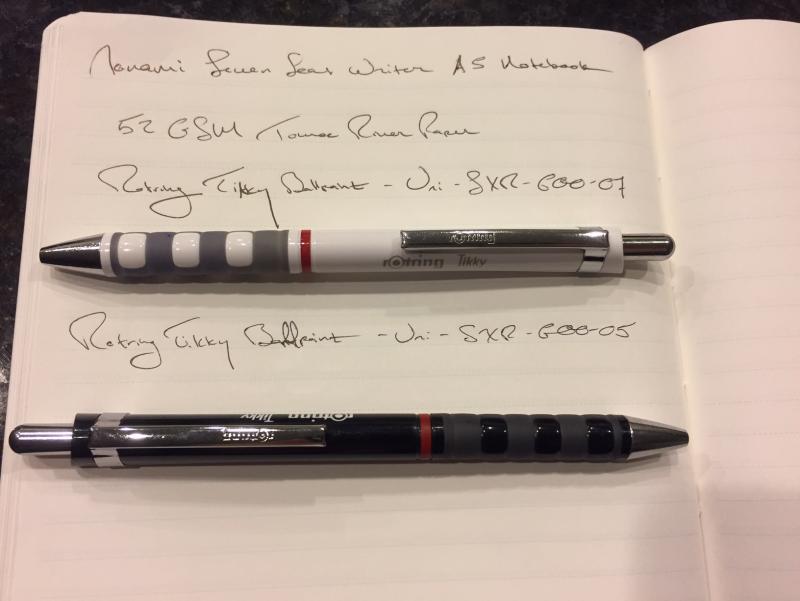 Nanami Seven Seas Writer A5 Notebook
52 GSM Tomoe River Paper
Rotring Tikky Ballpoint - Uni - SXR-600-07
rotring
rotring Tikky
Rotring Tikky Ballpoint - Uni - SXR-600-05
rotring Tikky
rotring